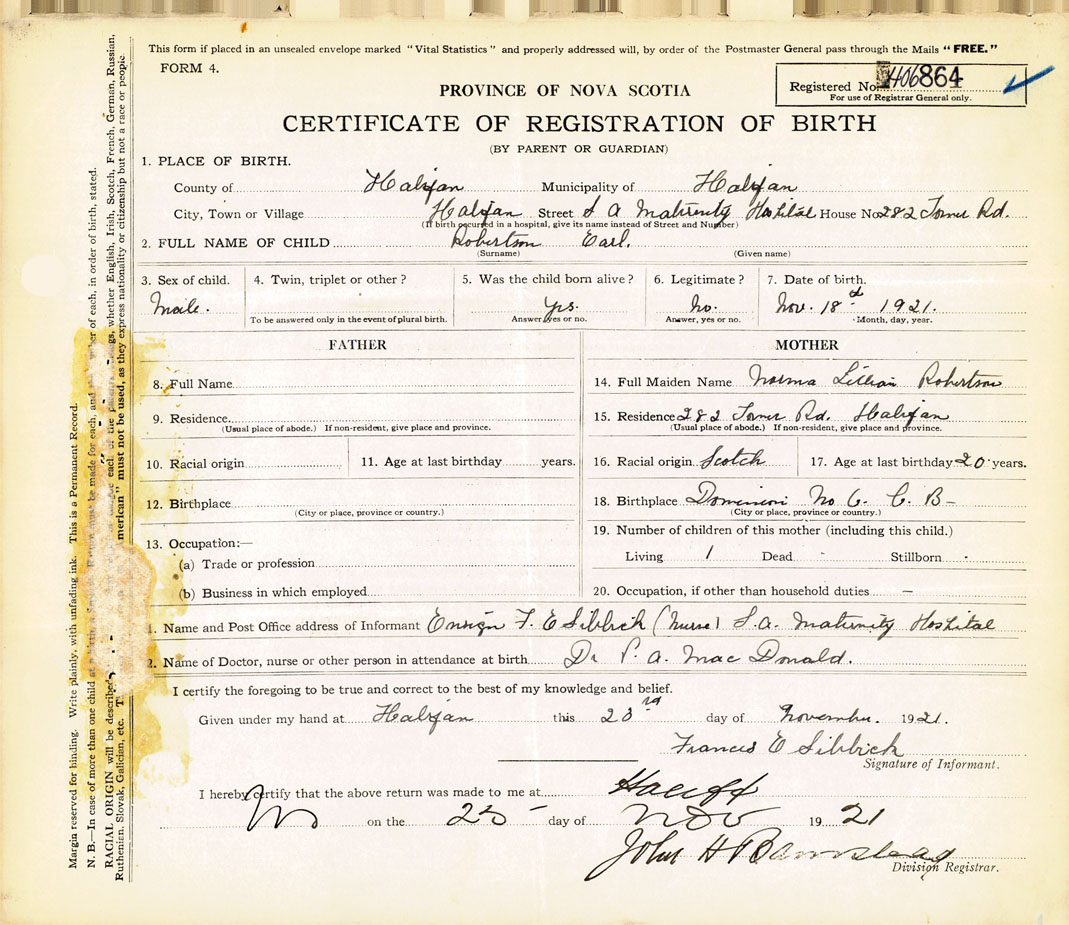 This form if placed in an unsealed envelope marked "Vital Statistics" and properly addressed will, by order of the Postmaster General pass through the Mails "FREE."
FORM 4.
Registered No. 406864
For use of Registrar General only.
PROVINCE OF NOVA SCOTIA
CERTIFICATE OF REGISTRATION OF BIRTH
(BY PARENT OR GUARDIAN)
1. PLACE OF BIRTH.
County of Halifax Municipality of Halifax
City, Town or Village Halifax Street S A Maternity Hospital House No 282 Tower Rd.
(If birth occurred in a hospital, give its name instead of Street and Number)
2. FULL NAME OF CHILD Robertson Earl.
(Surname) (Given name)
3. Sex of child. 4. Twin, triplet or other? 5. Was the child born alive? 6. Legitimate? 7. Date of birth.
Male. Yes. No. Nov. 18 1921.
To be answered only in the event of plural birth. Answer, yes or no. Answer, yes or no. Month, day, year.
FATHER MOTHER
8. Full Name 14. Full Maiden Name Norma Lillian Robertson
9. Residence 15. Residence 282 Tower Rd. Halifax
(Usual place of abode.) If non-resident, give place and province. (Usual place of abode.) If non-resident, give place and province.
10. Racial origin 11. Age at last birthday years. 16. Racial origin Scotch 17. Age at last birthday 20 years.
12. Birthplace 18. Birthplace Dominion No 6. C. B-
(City or place, province or country.) (City or place, province or country.)
13. Occupation:— 19. Number of children of this mother (including this child.)
(a) Trade or profession Living 1 Dead - Stillborn -
(b) Business in which employed 20. Occupation, if other than household duties —
1. Name and Post Office address of Informant Ensign F. E Sibbick (Nurse) S.A. Maternity Hoshital
2. Name of Doctor, nurse or other person in attendance at birth Dr P. A. Mac Donald.
I certify the foregoing to be true and correct to the best of my knowledge and belief.
Given under my hand at Halifax this 23rd day of November. 1921.
Frances E Sibbick
Signature of Informant.
I hereby certify that the above return was made to me at Halifx
on the 25 day of Nov 19 21
John H Barnstead
Division Registrar.
Margin reserved for binding. Write plainly, with unfading ink. This is a Permanent Record.
N. B.—In case of more than one child at must be made for each, and the of each, in order of birth, stated.
RACIAL ORIGIN will be described whether English, Irish, Scotch, French, German, Russian,
Ruthenian, Slovak, Galician, etc. American" must not be used, as they express nationality or citizenship but not a race or people